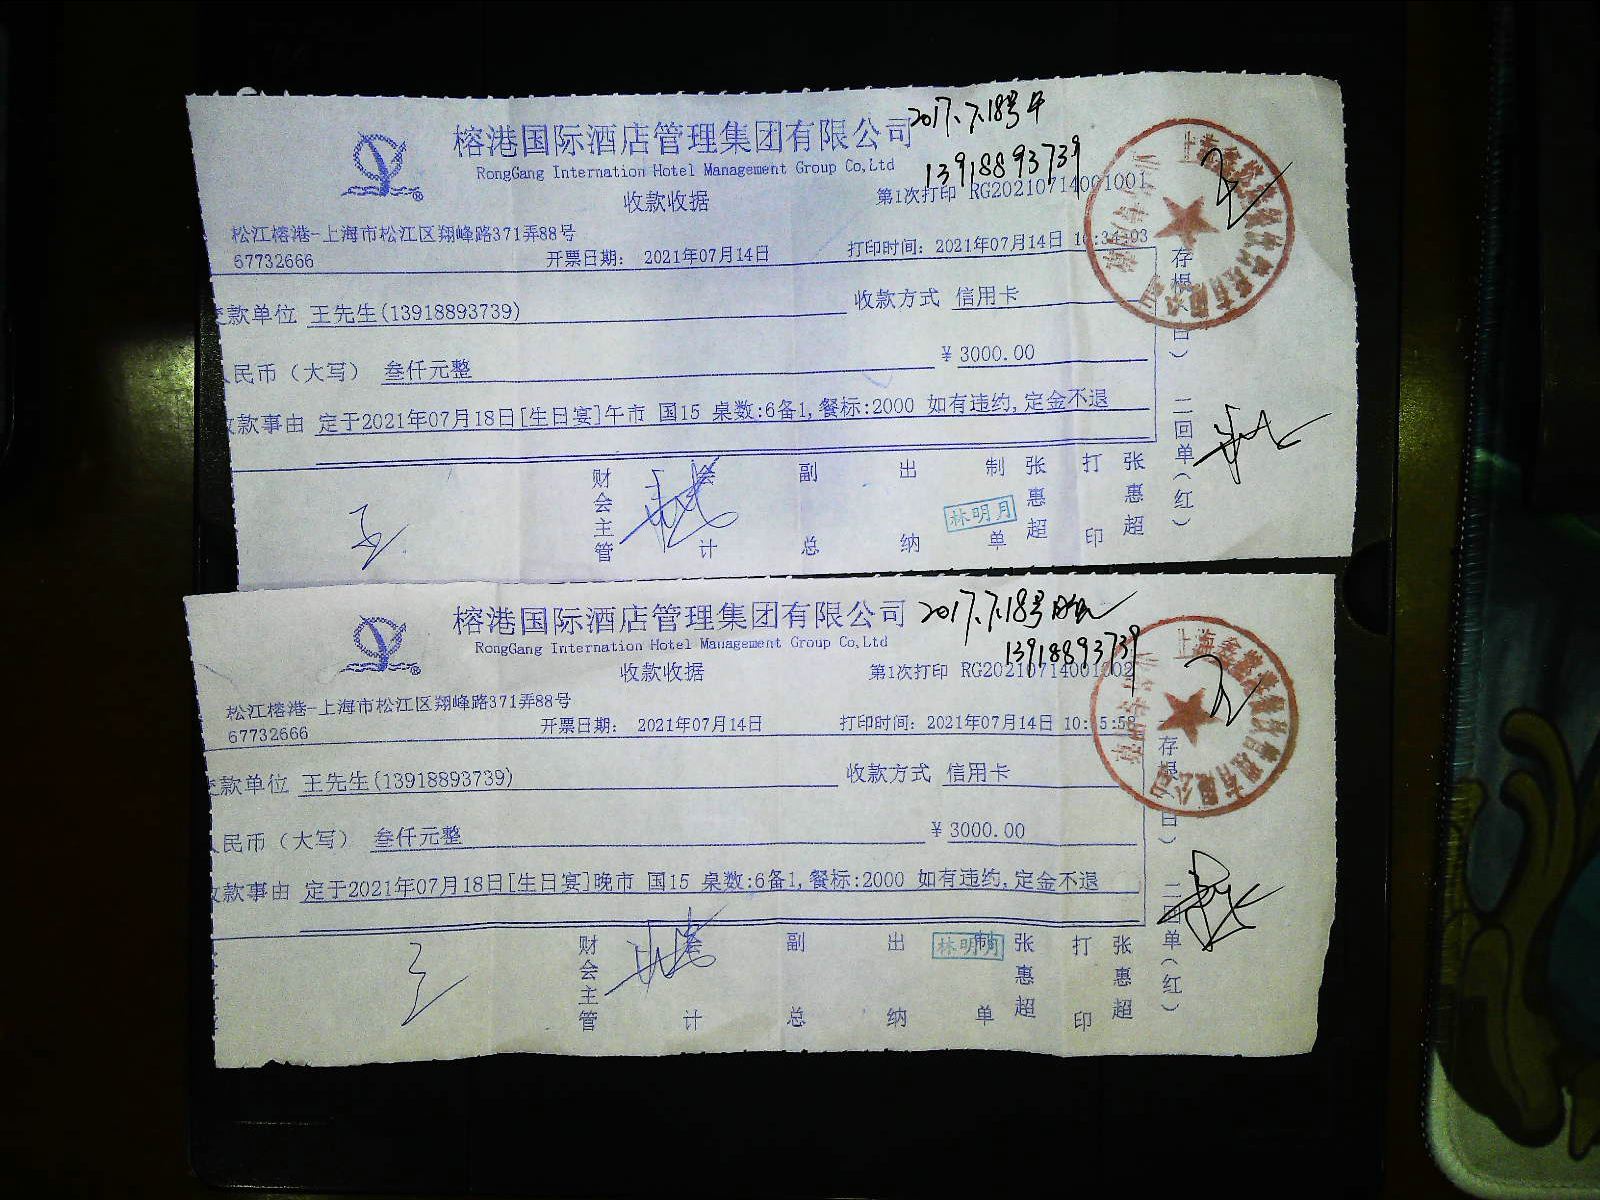 榕港国际酒店管理集团有限公司
2017.7.18号午
RongGang Internation Hotel Management Group Co,Ltd
13918893739
收款收据
第1次打印 RG20210714001001
松江榕港-上海市松江区翔峰路371弄88号
67732666
开票日期： 2021年07月14日
打印时间：2021年07月14日
款单位 王先生(13918893739)
收款方式 信用卡
民币（大写） 叁仟元整
¥ 3000.00
款事由 定于2021年07月18日[生日宴]午市 国15 桌数:6备1,餐标:2000 如有违约,定金不退
存根
二回单（红）
财会主管
会计
副总
出纳
制单
张惠超
打印
张惠超
林明月
榕港国际酒店管理集团有限公司
2017.7.18号晚
RongGang Internation Hotel Management Group Co,Ltd
13918893739
收款收据
第1次打印 RG20210714001002
松江榕港-上海市松江区翔峰路371弄88号
67732666
开票日期： 2021年07月14日
打印时间：2021年07月14日
款单位 王先生(13918893739)
收款方式 信用卡
民币（大写） 叁仟元整
¥ 3000.00
款事由 定于2021年07月18日[生日宴]晚市 国15 桌数:6备1,餐标:2000 如有违约,定金不退
存根
二回单（红）
财会主管
会计
副总
出纳
制单
张惠超
打印
张惠超
林明月